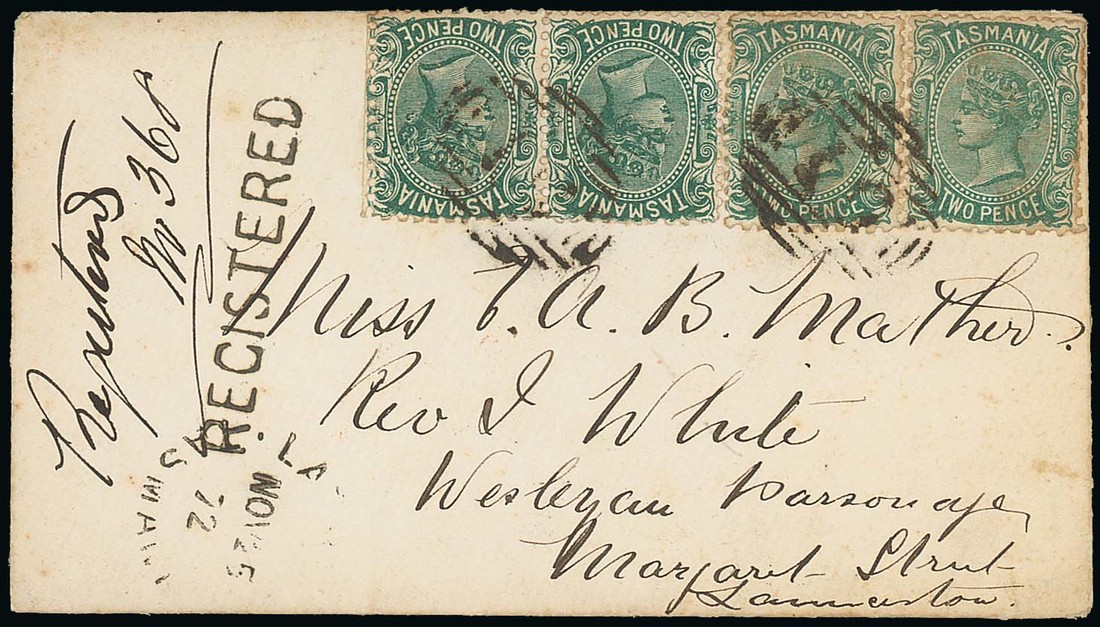 TWO PENCE
TASMANIA
TWO PENCE
TASMANIA
TASMANIA
TWO PENCE
TASMANIA
TWO PENCE
Registered
No 368
REGISTERED
Miss T. A. B. Mather
Rev J White
Wesleyan Parsonage
Margaret Street
Launceston.
LA
NOV 25
72
SMAN